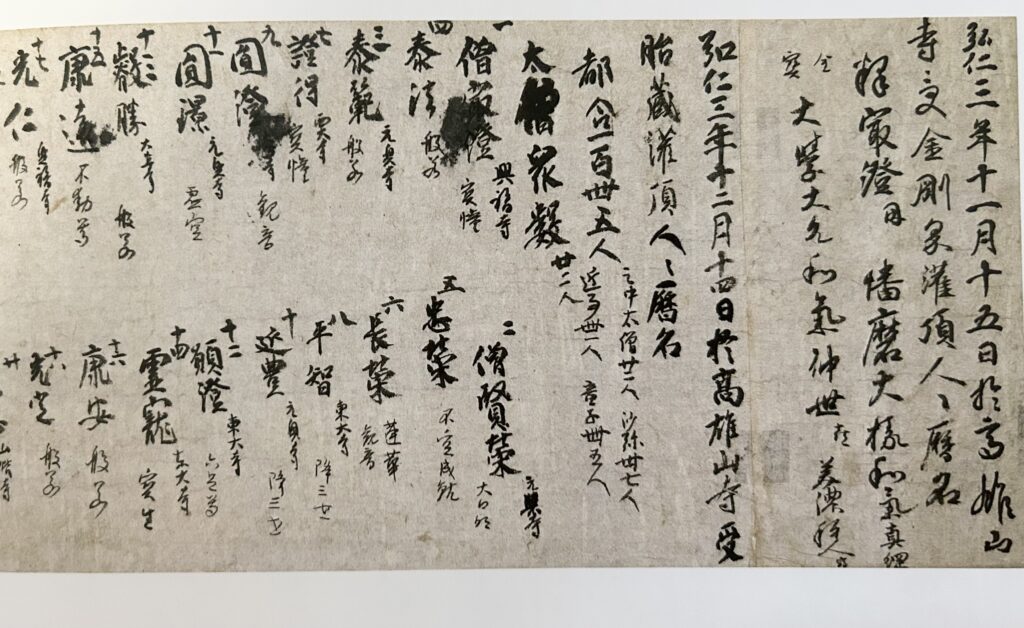 弘仁三年十一月十五日於高雄山
寺受金剛界灌頂人々暦名
釋最澄因 播磨大掾和氣真綱
大學大允和氣仲世 美濃種人
弘仁三年十二月十四日於高雄山寺受
胎藏灌頂人々暦名
都合一百卌五人 之中太僧廿二人 沙弥卌七人
近事卌一人 童子卌五人
太僧衆數 廿二人
一 僧最澄 興福寺 寳幢
二 僧賢榮 元興寺 大日
三 泰範 元興寺 般若
四 泰法 般若
五 忠榮 不空成就
六 長榮 蓮華 觀音
七 證得 寳幢
八 平智 東大寺 降三世
九 圓澄 觀音
十 延豊 元興寺 降三世
十一 圓璟 元興寺 虚空
十二 願澄 東大寺 六足尊
十三 叡勝 大安寺 般若
十四 靈龍 東大寺 寳生
十五 康遠 不動尊
十六 康安 般若
十七 光仁 興福寺 般若
十八 光定 般若
廿 山階寺